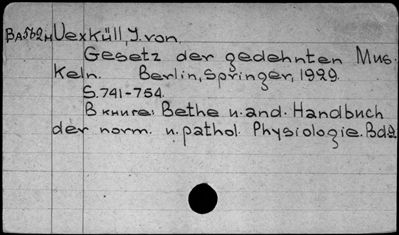 BA562м Uexküll, J. von.
Gesetz der gedehnten Mus-
keln. Berlin, Springer, 1929.
S. 741-754.
В книге: Bethe u. and. Handbuch
der norm. u. pathol. Physiologie. Bd 9.